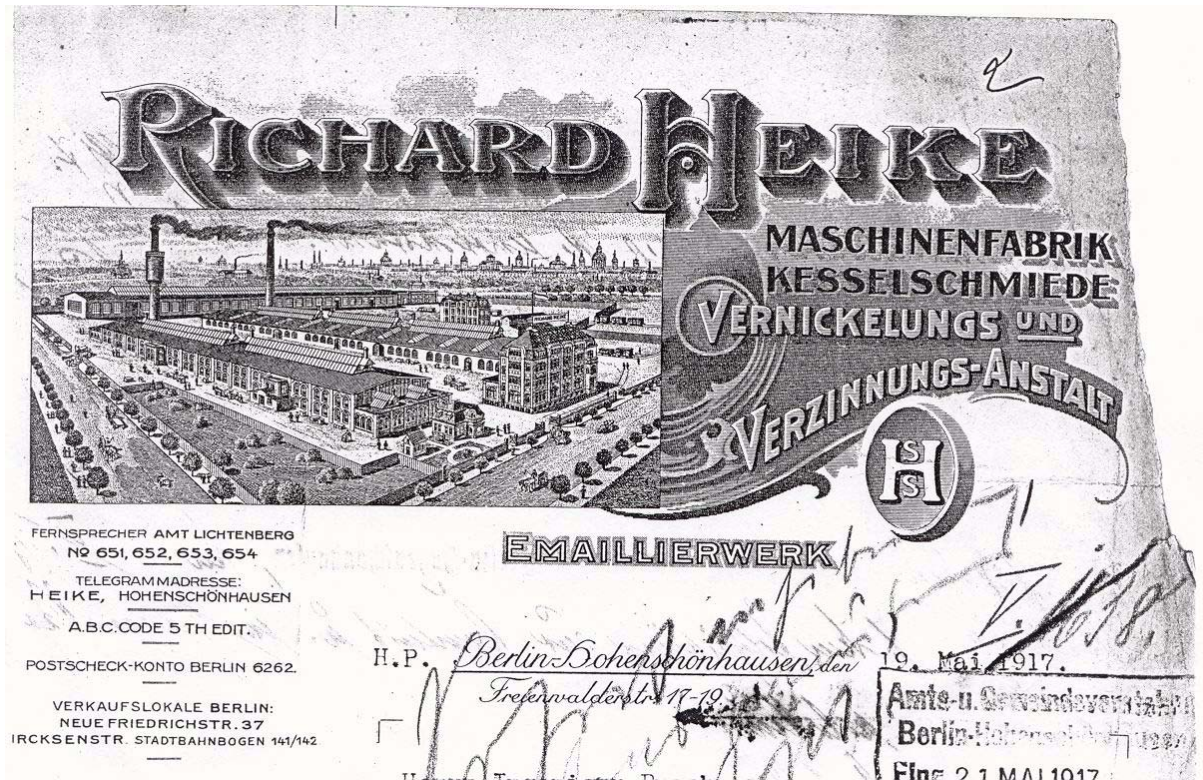 RICHARD HEIKE
MASCHINENFABRIK
KESSELSCHMIEDE
VERNICKELUNGS UND
VERZINNUNGS-ANSTALT
S
H
S
EMAILLIERWERK
FERNSPRECHER AMT LICHTENBERG
No 651, 652, 653, 654
TELEGRAMMADRESSE:
HEIKE, HOHENSCHÖNHAUSEN
A.B.C. CODE 5 TH EDIT.
POSTSCHECK-KONTO BERLIN 6262.
VERKAUFSLOKALE BERLIN:
NEUE FRIEDRICHSTR. 37
IRCKSENSTR. STADTBAHNBOGEN 141/142
H.P. Berlin-Hohenschönhausen, den 19. Mai 1917.
Freienwalderstr. 17-19
Amts- u. Gemeindevorsteher
Berlin-Hohenschönhausen
Eing 21. MAI 1917